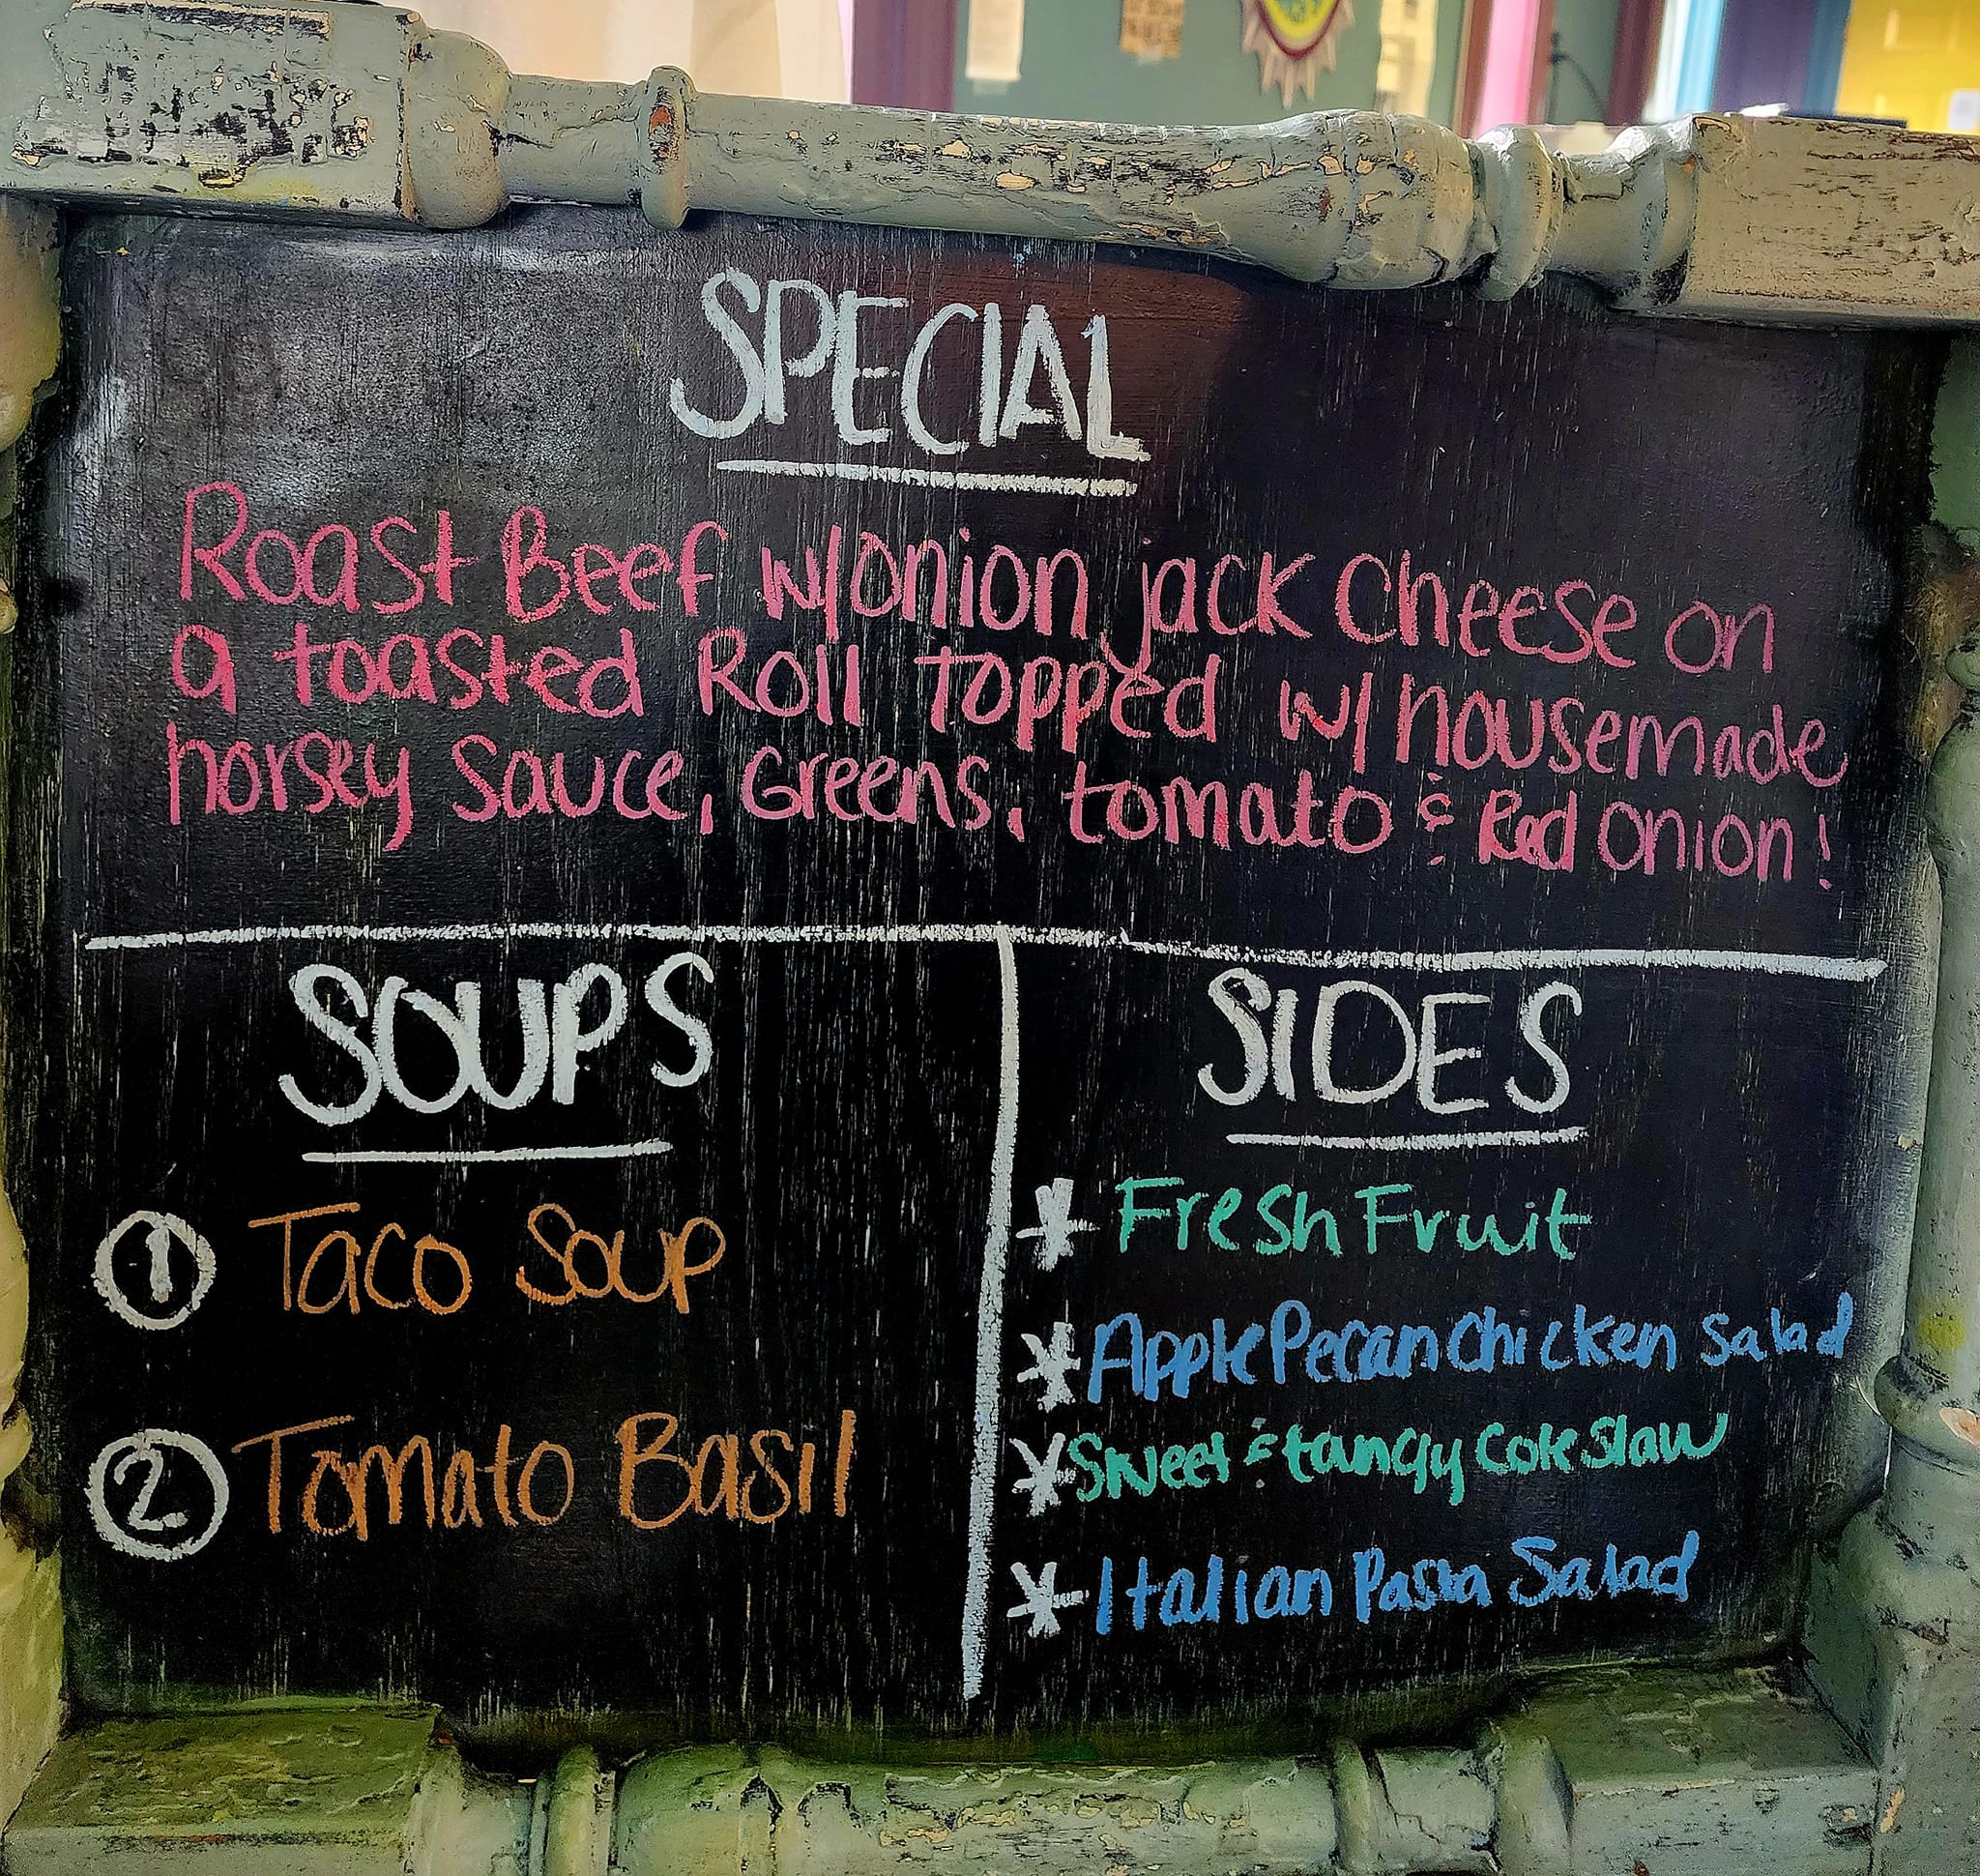 SPECIAL
Roast Beef w/onion jack Cheese on
a toasted Roll topped w/ housemade
horsey sauce, Greens, tomato & Red onion!
SOUPS
1 Taco Soup
2 Tomato Basil
SIDES
* Fresh Fruit
* Apple Pecan Chicken Salad
* Sweet & tangy Cole Slaw
* Italian Pasta Salad